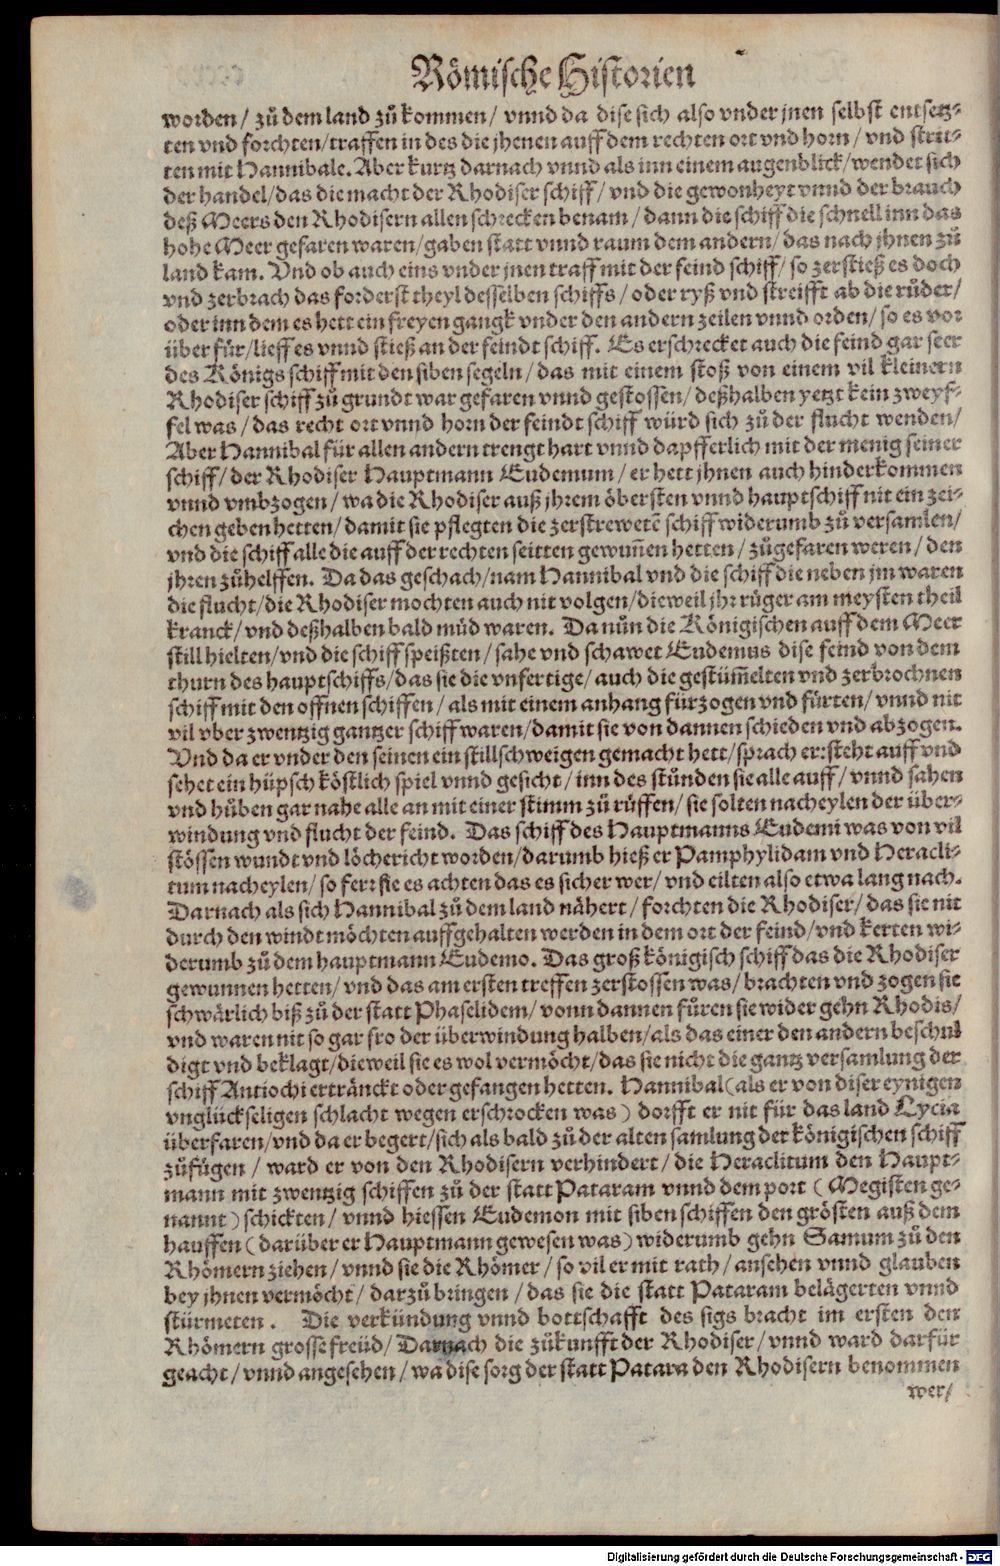 Römische Historien
worden/ zů dem land zů kommen/ vnnd da dise sich also vnder jnen selbst entsetz-
ten vnd forchten/ traffen in des die jhenen auff dem rechten ort vnd horn/ vnd strit-
ten mit Hannibale. Aber kurtz darnach vnnd als inn einem augenblick/ wendet sich
der handel/ das die macht der Rhodiser schiff/ vnd die gewonheyt vnnd der brauch
deß Meers den Rhodisern allen schrecken benam/ dann die schiff die schnell inn das
hohe Meer gefaren waren/ gaben statt vnnd raum dem andern/ das nach jhnen zů
land kam. Vnd ob auch eins vnder jnen traff mit der feind schiff/ so zerstieß es doch
vnd zerbrach das forderst theyl desselben schiffs/ oder ryß vnd streifft ab die růder/
oder inn dem es hett ein freyen gangk vnder den andern zeilen vnnd orden/ so es vor
über fůr/ lieff es vnnd stieß an der feindt schiff. Es erschrecket auch die feind gar seer
des Königs schiff mit den siben segeln/ das mit einem stoß von einem vil kleinern
Rhodiser schiff zů grundt war gefaren vnnd gestossen/ deßhalben yetzt kein zweyf-
fel was/ das recht ort vnnd horn der feindt schiff würd sich zů der flucht wenden/
Aber Hannibal für allen andern trengt hart vnnd dapfferlich mit der menig seiner
schiff/ der Rhodiser Hauptmann Eudemum/ er hett jhnen auch hinderkommen
vnnd vmbzogen/ wa die Rhodiser auß jhrem öbersten vnnd hauptschiff nit ein zei-
chen geben hetten/ damit sie pflegten die zerstrewetē schiff widerumb zů versamlen/
vnd die schiff alle die auff der rechten seitten gewuñen hetten/ zůgefaren weren/ den
jhren zůhelffen. Da das geschach/ nam Hannibal vnd die schiff die neben jm waren
die flucht/ die Rhodiser mochten auch nit volgen/ dieweil jhr růger am meysten theil
kranck/ vnd deßhalben bald můd waren. Da nůn die Königischen auff dem Meer
still hielten/ vnd die schiff speißten/ sahe vnd schawet Eudemus dise feind von dem
thurn des hauptschiffs/ das sie die vnfertige/ auch die gestüm̃elten vnd zerbrochnen
schiff mit den offnen schiffen/ als mit einem anhang fürzogen vnd fůrten/ vnnd nit
vil vber zwentzig gantzer schiff waren/ damit sie von dannen schieden vnd abzogen.
Vnd da er vnder den seinen ein stillschweigen gemacht hett/ sprach er: steht auff vnd
sehet ein hüpsch köstlich spiel vnnd gesicht/ inn des stůnden sie alle auff/ vnnd sahen
vnd hůben gar nahe alle an mit einer stimm zů růffen/ sie solten nacheylen der über-
windung vnd flucht der feind. Das schiff des Hauptmanns Eudemi was von vil
stössen wundt vnd löchericht worden/ darumb hieß er Pamphylidam vnd Heracli-
tum nacheylen/ so ferr sie es achten das es sicher wer/ vnd eilten also etwa lang nach.
Darnach als sich Hannibal zů dem land nähert/ forchten die Rhodiser/ das sie nit
durch den windt möchten auffgehalten werden in dem ort der feind/ vnd kerten wi-
derumb zů dem hauptmann Eudemo. Das groß königisch schiff das die Rhodiser
gewunnen hetten/ vnd das am ersten treffen zerstossen was/ brachten vnd zogen sie
schwärlich biß zů der statt Phaselidem/ vonn dannen fůren sie wider gehn Rhodis/
vnd waren nit so gar fro der überwindung halben/ als das einer den andern beschul
digt vnd beklagt/ dieweil sie es wol vermöcht/ das sie nicht die gantz versamlung der
schiff Antiochi ertränckt oder gefangen hetten. Hannibal (als er von diser eynigen
vnglückseligen schlacht wegen erschrocken was) dorfft er nit für das land Lycia
überfaren/ vnd da er begert/ sich als bald zů der alten samlung der königischen schiff
zůfügen/ ward er von den Rhodisern verhindert/ die Heraclitum den Haupt-
mann mit zwentzig schiffen zů der statt Pataram vnnd dem port (Megisten ge-
nannt) schickten/ vnnd hiessen Eudemon mit siben schiffen den grösten auß dem
hauffen (darüber er Hauptmann gewesen was) widerumb gehn Samum zů den
Rhömern ziehen/ vnnd sie die Rhömer/ so vil er mit rath/ ansehen vnnd glauben
bey jhnen vermöcht/ darzů bringen/ das sie die statt Pataram belägerten vnnd
stürmeten. Die verkündung vnnd bottschafft des sigs bracht im ersten den
Rhömern grosse freüd/ Darnach die zůkunfft der Rhodiser/ vnnd ward darfür
geacht/ vnnd angesehen/ wa dise sorg der statt Patara den Rhodisern benommen
wer/
Digitalisierung gefördert durch die Deutsche Forschungsgemeinschaft - DFG